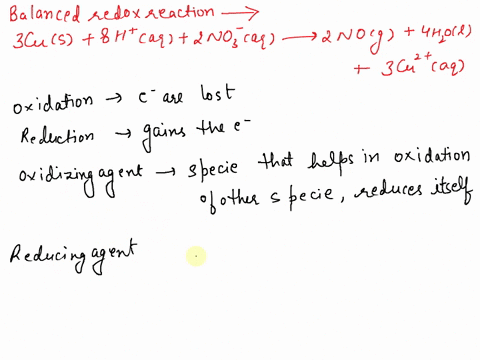 Balanced redox reaction →
3Cu(s) + 8H⁺(aq) + 2NO₃⁻(aq) → 2NO(g) + 4H₂O(l)
+ 3Cu²⁺(aq)
Oxidation → e⁻ are lost
Reduction → gains the e⁻
Oxidizing agent → specie that helps in oxidation
of other specie, reduces itself
Reducing agent